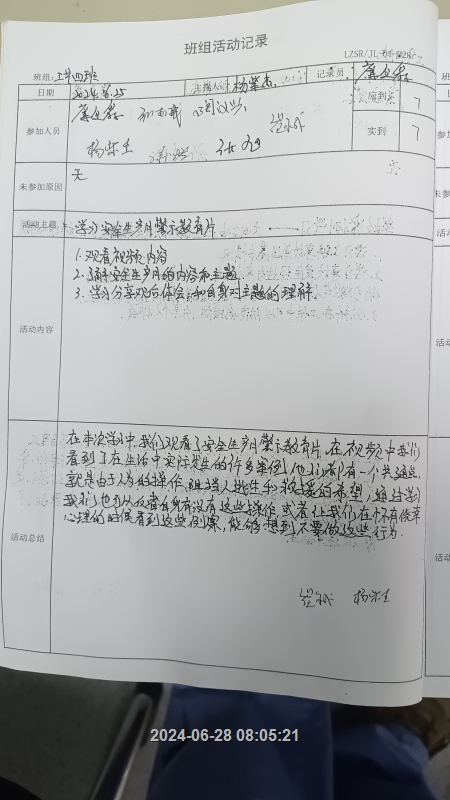 班组活动记录
LZSR/JL
班组:上井四班
日期 主持人 杨荣志 记录员
参加人员 应到 7
实到 7
未参加原因 无
活动主题 学习安全生产月警示教育片
活动内容
1.观看视频内容
2.了解安全生产月的内容和主题
3.学习分享观后体会,和自身对主题的理解.
活动总结
在本次学习中,我们观看了安全生产月警示教育片,在视频中我们
看到了在生活中实际发生的许多案例,他们都有一个共通点
就是由于人为的操作,阻挡人逃生和救援的希望,通过学习
我们也可以反省自身有没有这些操作或者让我们在怀有侥幸
心理的时候看到这些例票,能够想到不要做这些行为.
2024-06-28 08:05:21